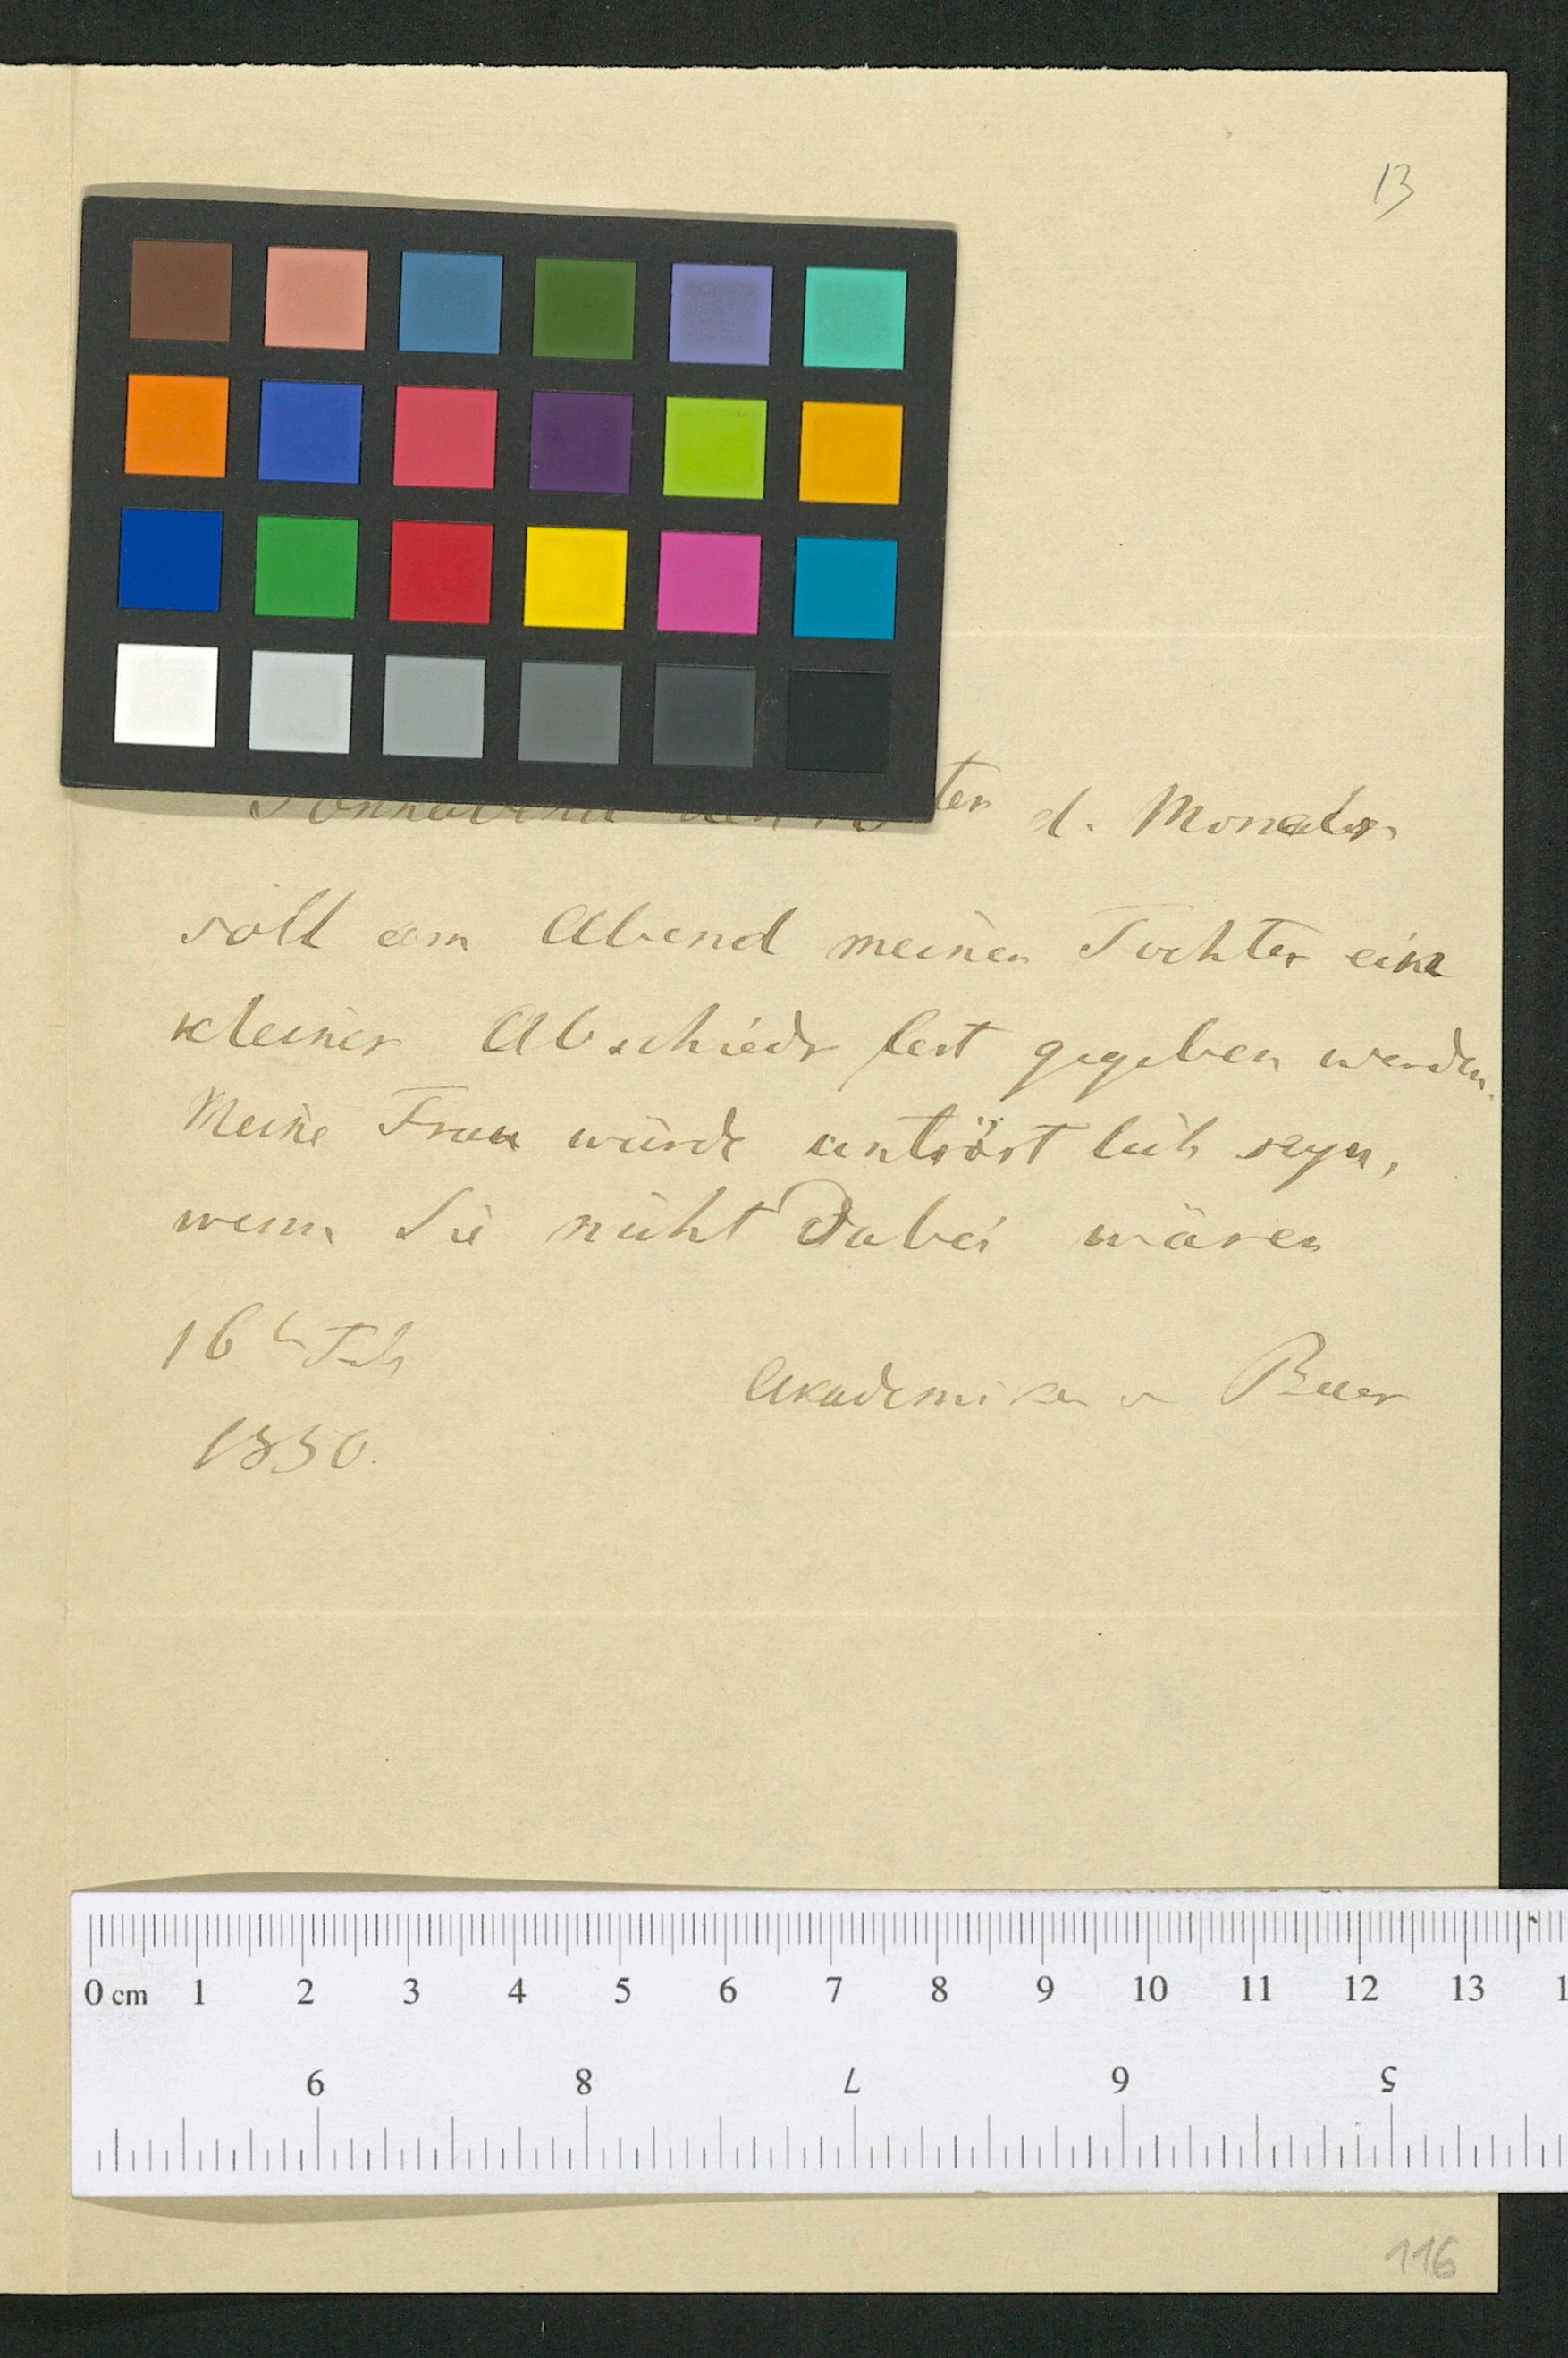 13
Sonnabend den ten d. Monats
soll am Abend meiner Tochter ein
kleines Abschieds fest gegeben werden.
Meine Frau würde untröst lich seyn,
wenn Sie nicht dabei wären
16
Akademiker v Baer
1850.
0 cm 1 2 3 4 5 6 7 8 9 10 11 12 13 1
9 8 7 6 5
116